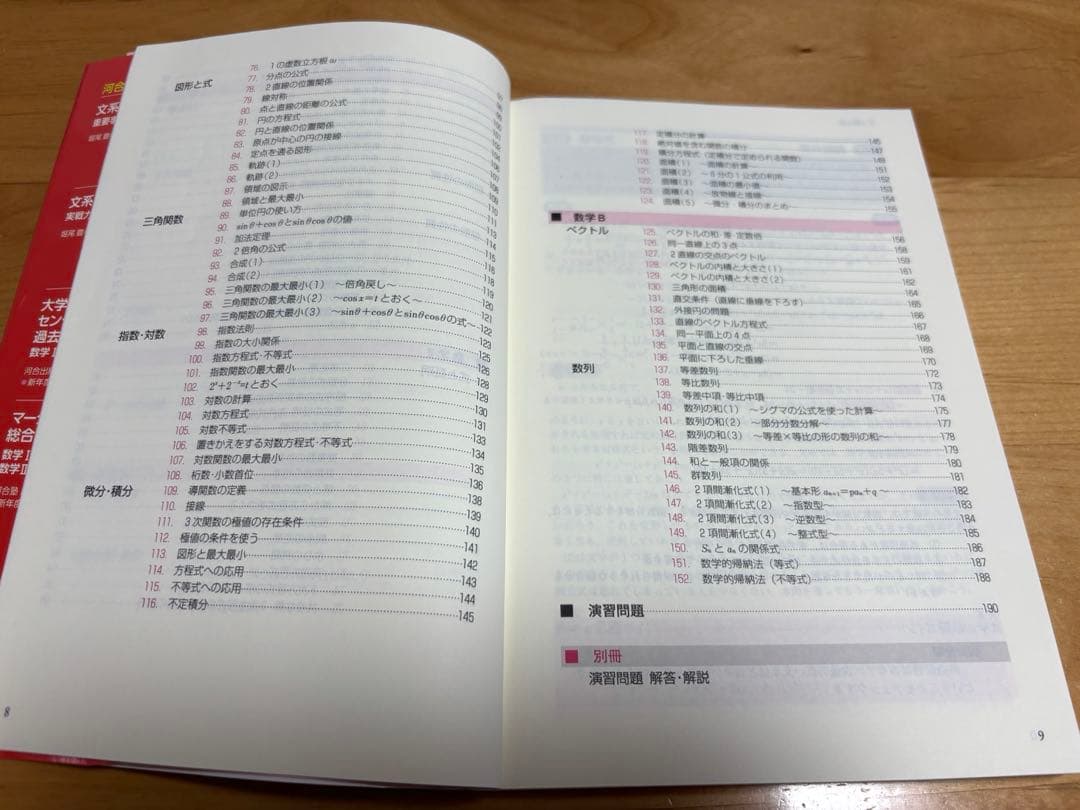 河合
文系
重要事
堀尾
文系
実戦力
堀尾
大学
センタ
過去
数学Ⅰ
河合出版
*新年度
マー
総合
数学Ⅰ
数学Ⅱ
河合塾
*新年度
図形と式
76. 1の虚数立方根ω 97
77. 分点の公式 98
78. 2直線の位置関係 99
79. 線対称 100
80. 点と直線の距離の公式 101
81. 円の方程式
82. 円と直線の位置関係
83. 原点が中心の円の接線
84. 定点を通る図形 107
85. 軌跡(1) 108
86. 軌跡(2) 109
87. 領域の図示 110
88. 領域と最大最小 111
三角関数
89. 単位円の使い方 113
90. sinθ+cosθとsinθcosθの値 114
91. 加法定理 115
92. 2倍角の公式 116
93. 合成(1) 118
94. 合成(2) 119
95. 三角関数の最大最小(1) ～倍角戻し～ 120
96. 三角関数の最大最小(2) ～cosx=tとおく～ 121
97. 三角関数の最大最小(3) ～sinθ+cosθとsinθcosθの式～ 122
指数・対数
98. 指数法則 123
99. 指数の大小関係 125
100. 指数方程式・不等式 126
101. 指数関数の最大最小 128
102. 2ˣ+2⁻ˣ=tとおく 129
103. 対数の計算 130
104. 対数方程式 131
105. 対数不等式 133
106. 置きかえをする対数方程式・不等式 134
107. 対数関数の最大最小 135
108. 桁数・小数首位 136
微分・積分
109. 導関数の定義 138
110. 接線 139
111. 3次関数の極値の存在条件 140
112. 極値の条件を使う 141
113. 図形と最大最小 142
114. 方程式への応用 143
115. 不等式への応用 144
116. 不定積分 145
8
117. 定積分の計算
118. 絶対値を含む関数の積分 147
119. 積分方程式（定積分で定められる関数） 149
120. 面積(1) ～面積の計算～ 151
121. 面積(2) ～6分の1公式の利用～ 152
122. 面積(3) ～面積の最小値～ 153
123. 面積(4) ～放物線と接線～ 154
124. 面積(5) ～微分・積分のまとめ～ 155
■ 数学B
ベクトル
125. ベクトルの和・差・定数倍 156
126. 同一直線上の3点 158
127. 2直線の交点のベクトル 159
128. ベクトルの内積と大きさ(1) 161
129. ベクトルの内積と大きさ(2) 162
130. 三角形の面積 164
131. 直交条件（直線に垂線を下ろす） 165
132. 外接円の問題 166
133. 直線のベクトル方程式 167
134. 同一平面上の4点 168
135. 平面と直線の交点 169
136. 平面に下ろした垂線 170
数列
137. 等差数列 172
138. 等比数列 173
139. 等差中項・等比中項 174
140. 数列の和(1) ～シグマの公式を使った計算～ 175
141. 数列の和(2) ～部分分数分解～ 177
142. 数列の和(3) ～等差×等比の形の数列の和～ 178
143. 階差数列 179
144. 和と一般項の関係 180
145. 群数列 181
146. 2項間漸化式(1) ～基本形 aₙ₊₁=paₙ+q～ 182
147. 2項間漸化式(2) ～指数型～ 183
148. 2項間漸化式(3) ～逆数型～ 184
149. 2項間漸化式(4) ～整式型～ 185
150. Sₙとaₙの関係式 186
151. 数学的帰納法（等式） 187
152. 数学的帰納法（不等式） 188
■ 演習問題 190
■ 別冊
演習問題 解答・解説
9